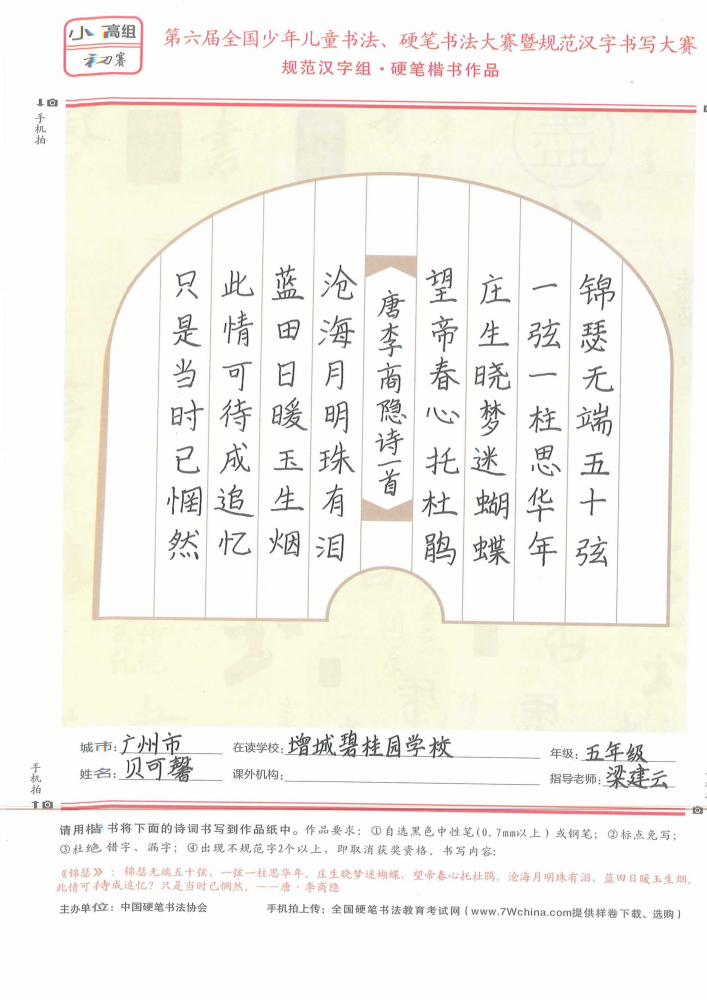 小高组
初赛
第六届全国少年儿童书法、硬笔书法大赛暨规范汉字书写大赛
规范汉字组·硬笔楷书作品
手机拍
锦瑟无端五十弦
一弦一柱思华年
庄生晓梦迷蝴蝶
望帝春心托杜鹃
唐李商隐诗一首
沧海月明珠有泪
蓝田日暖玉生烟
此情可待成追忆
只是当时已惘然
城市:广州市 在读学校:增城碧桂园学校 年级:五年级
姓名:贝可馨 课外机构: 指导老师:梁建云
手机拍
请用楷书将下面的诗词书写到作品纸中。作品要求：①自选黑色中性笔(0.7mm以上)或钢笔；②标点免写；
③杜绝错字、漏字；④出现不规范字2个以上，即取消获奖资格。书写内容：
《锦瑟》：锦瑟无端五十弦，一弦一柱思华年。庄生晓梦迷蝴蝶，望帝春心托杜鹃。沧海月明珠有泪，蓝田日暖玉生烟。
此情可待成追忆？只是当时已惘然。——唐·李商隐
主办单位：中国硬笔书法协会 手机拍上传：全国硬笔书法教育考试网(www.7Wchina.com提供样卷下载、选购)